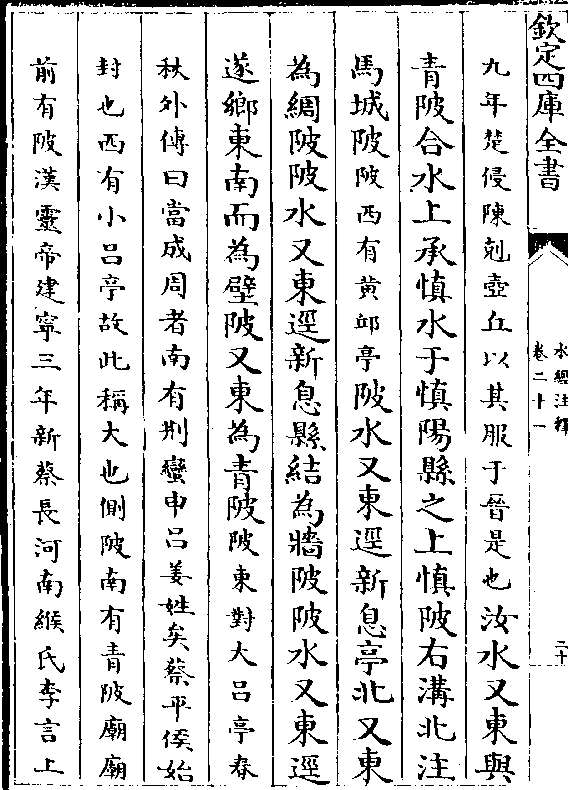 欽定四庫全書
水經注釋
卷二十一
二十
九年楚侵陳剋壺丘以其服于晉是也汝水又東與
青陂合水上承慎水于慎陽縣之上慎陂右溝北注
馬城陂陂西有黃邱亭陂水又東逕新息亭北又東
為綢陂陂水又東逕新息縣結為牆陂陂水又東逕
遂鄉東南而為壁陂又東為青陂陂東對大吕亭春
秋外傳曰當成周者南有荆蠻申吕姜姓矣蔡平侯始
封也西有小吕亭故此稱大也側陂南有青陂廟廟
前有陂漢靈帝建寧三年新蔡長河南緱氏李言上